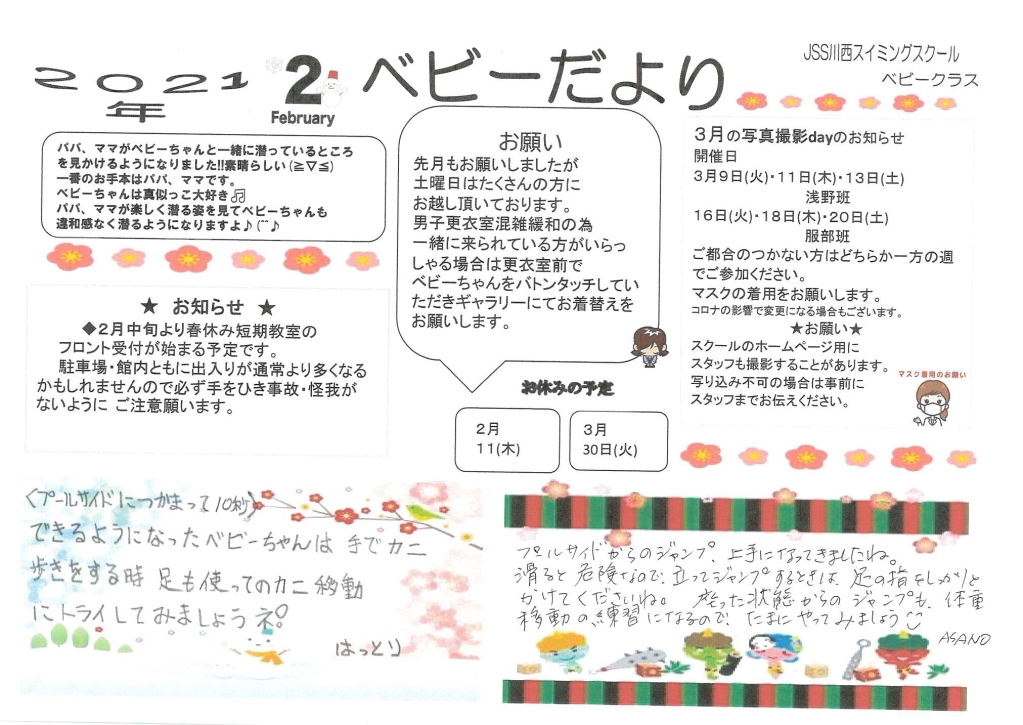 2021
年
2
February
ベビーだより
JSS川西スイミングスクール
ベビークラス
パパ、ママがベビーちゃんと一緒に潜っているところ
を見かけるようになりました!!素晴らしい(≧▽≦)
一番のお手本はパパ、ママです。
ベビーちゃんは真似っこ大好き🎵
パパ、ママが楽しく潜る姿を見てベビーちゃんも
違和感なく潜るようになりますよ♪(˘˘♪
★ お知らせ ★
◆2月中旬より春休み短期教室の
フロント受付が始まる予定です。
駐車場・館内ともに出入りが通常より多くなる
かもしれませんので必ず手をひき事故・怪我が
ないように ご注意願います。
お願い
先月もお願いしましたが
土曜日はたくさんの方に
お越し頂いております。
男子更衣室混雑緩和の為
一緒に来られている方がいらっ
しゃる場合は更衣室前で
ベビーちゃんをバトンタッチしてい
ただきギャラリーにてお着替えを
お願いします。
お休みの予定
2月
11(木)
3月
30日(火)
3月の写真撮影dayのお知らせ
開催日
3月9日(火)・11日(木)・13日(土)
浅野班
16日(火)・18日(木)・20日(土)
服部班
ご都合のつかない方はどちらか一方の週
でご参加ください。
マスクの着用をお願いします。
コロナの影響で変更になる場合もございます。
★お願い★
スクールのホームページ用に
スタッフも撮影することがあります。
写り込み不可の場合は事前に
スタッフまでお伝えください。
マスク着用のお願い
〈プールサイドにつかまって10秒〉
できるようになったベビーちゃんは 手でカニ
歩きをする時 足も使ってのカニ移動
にトライしてみましょうネ!
はっとり
プールサイドからのジャンプ、上手になってきましたね。
滑ると危険なので、立ってジャンプするときは、足の指をしっかりと
かけてくださいね。 座った状態からのジャンプも、体重
移動の練習になるので、たまにやってみましょう
ASANO